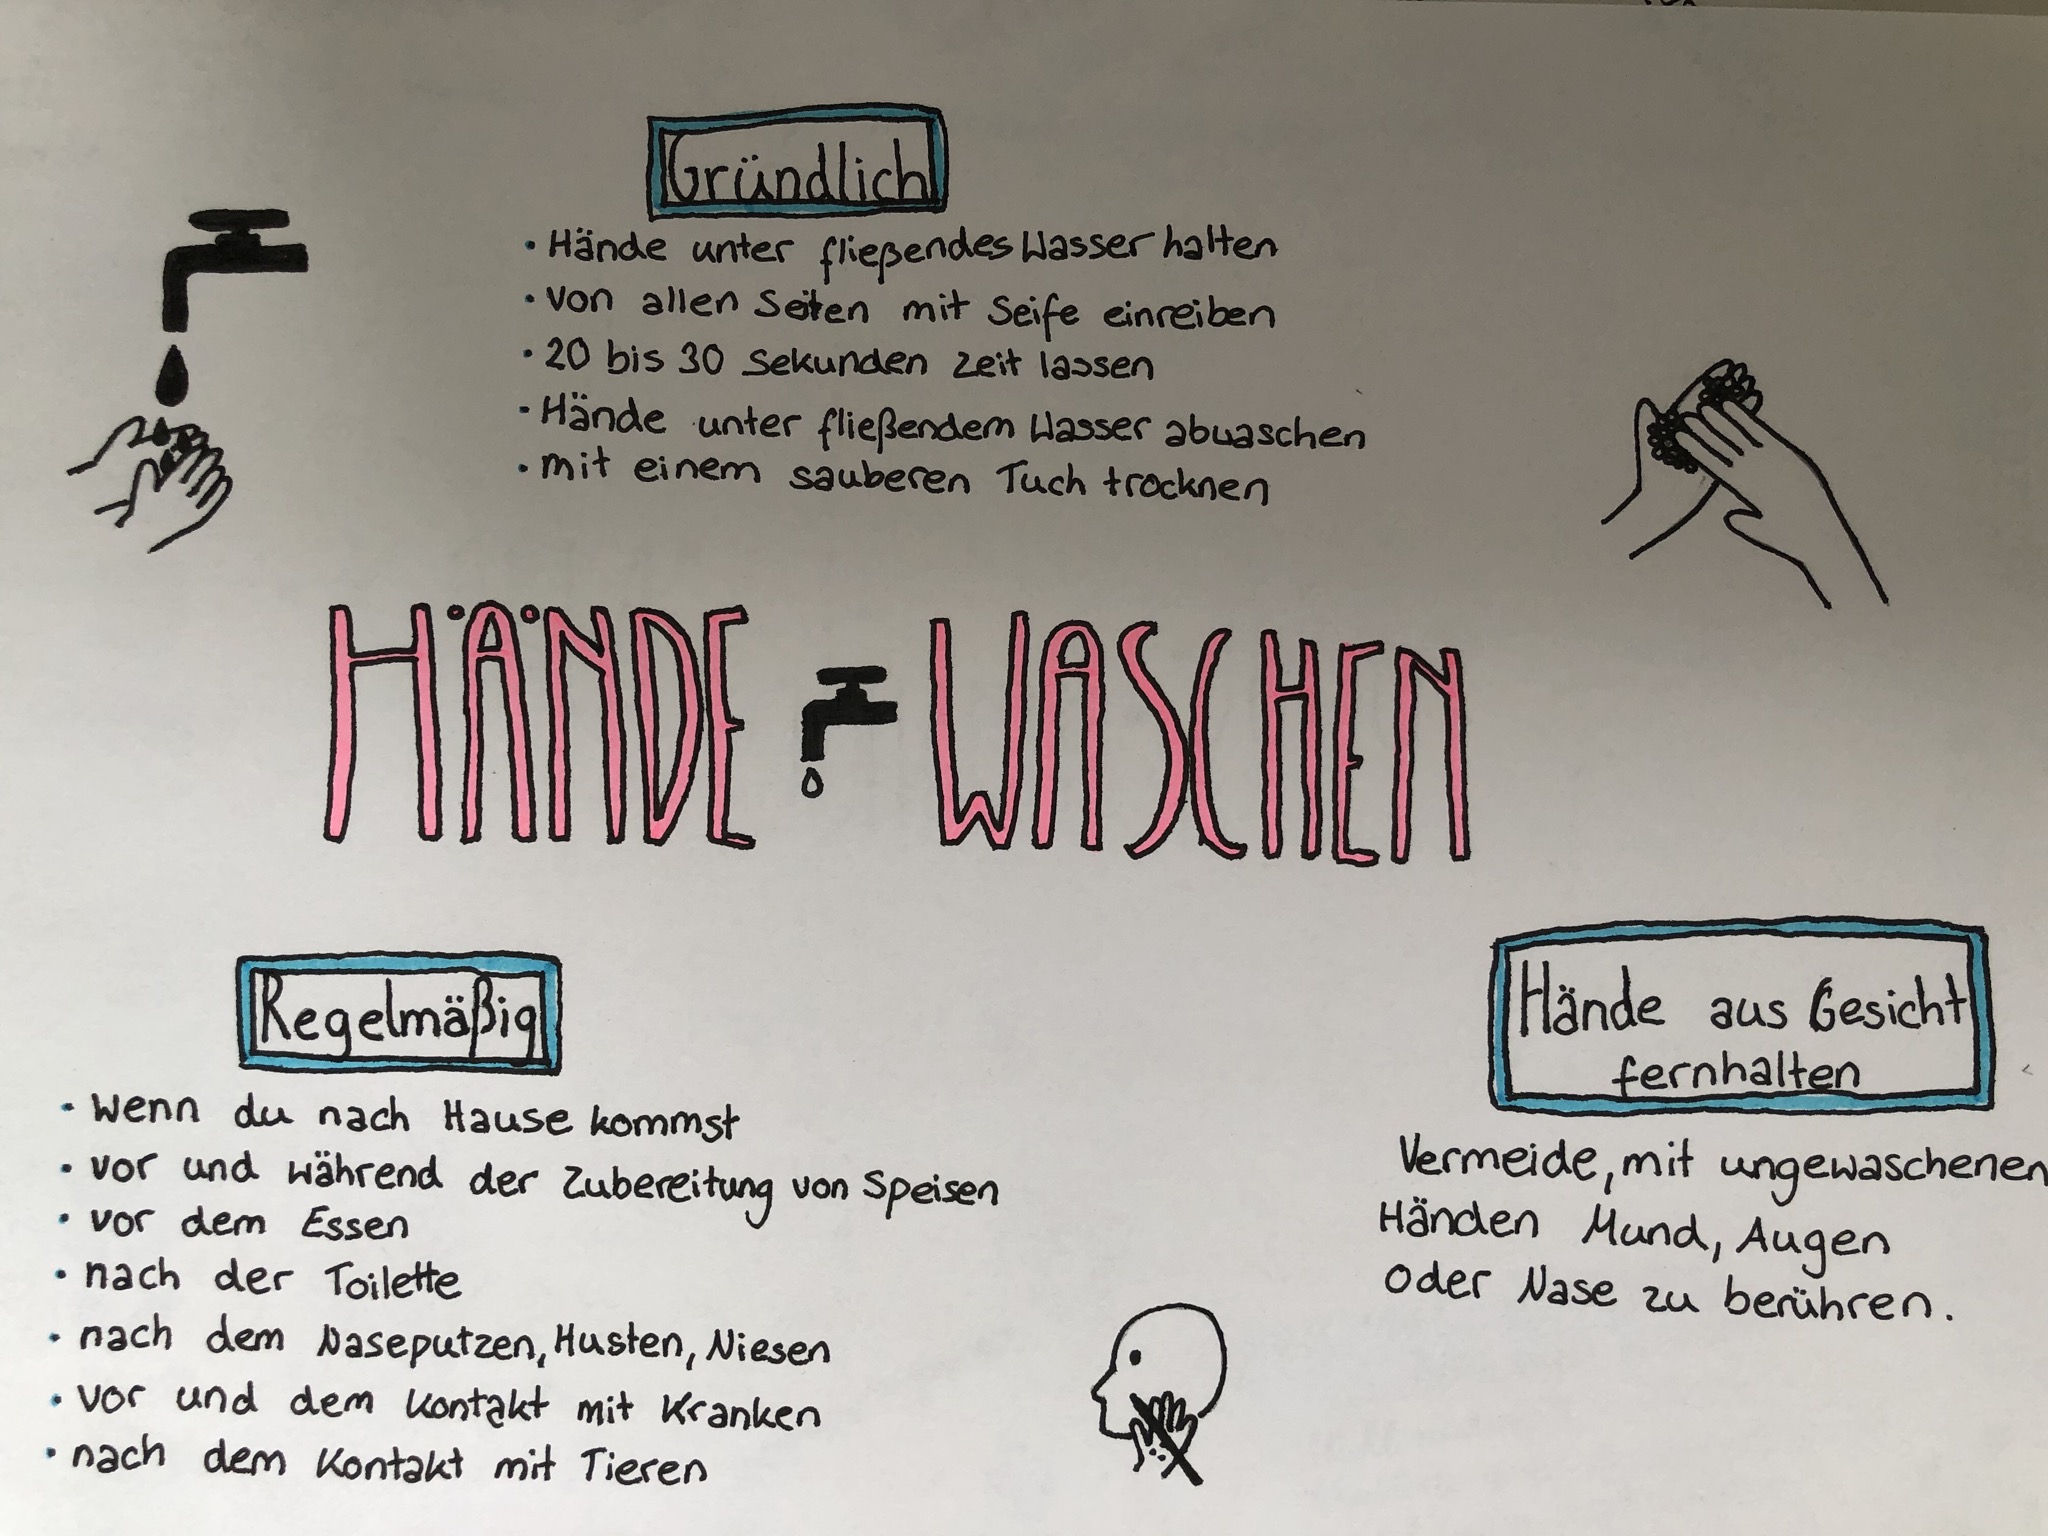 Gründlich
• Hände unter fließendes Wasser halten
• von allen Seiten mit Seife einreiben
• 20 bis 30 Sekunden Zeit lassen
• Hände unter fließendem Wasser abwaschen
• mit einem sauberen Tuch trocknen
HÄNDE WASCHEN
Regelmäßig
• Wenn du nach Hause kommst
• vor und während der Zubereitung von Speisen
• vor dem Essen
• nach der Toilette
• nach dem Naseputzen, Husten, Niesen
• vor und dem Kontakt mit Kranken
• nach dem Kontakt mit Tieren
Hände aus Gesicht
fernhalten
Vermeide, mit ungewaschenen
Händen Mund, Augen
oder Nase zu berühren.